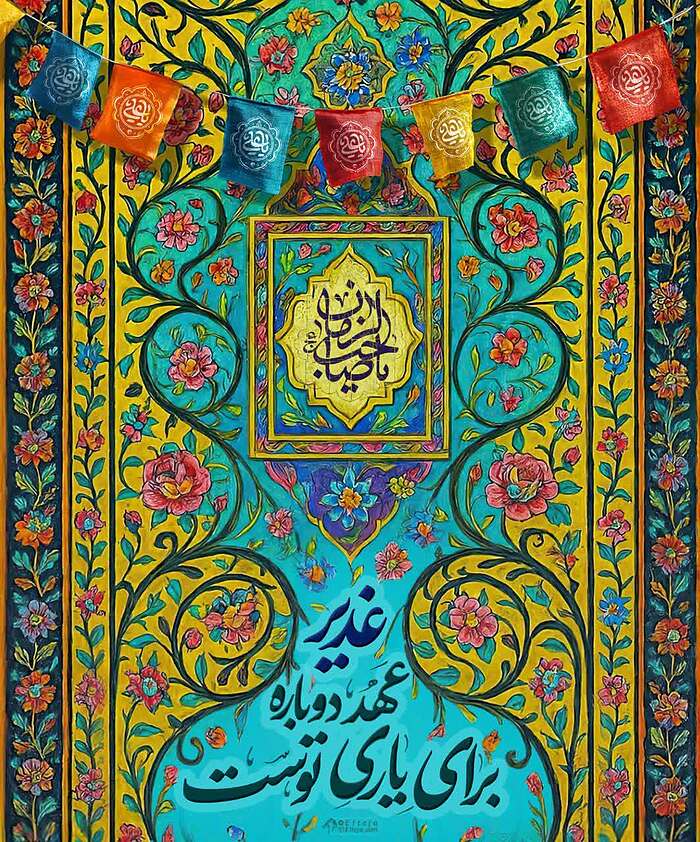 یا صاحب الزمان
غدیر
عهد دوباره
برای یاری توست